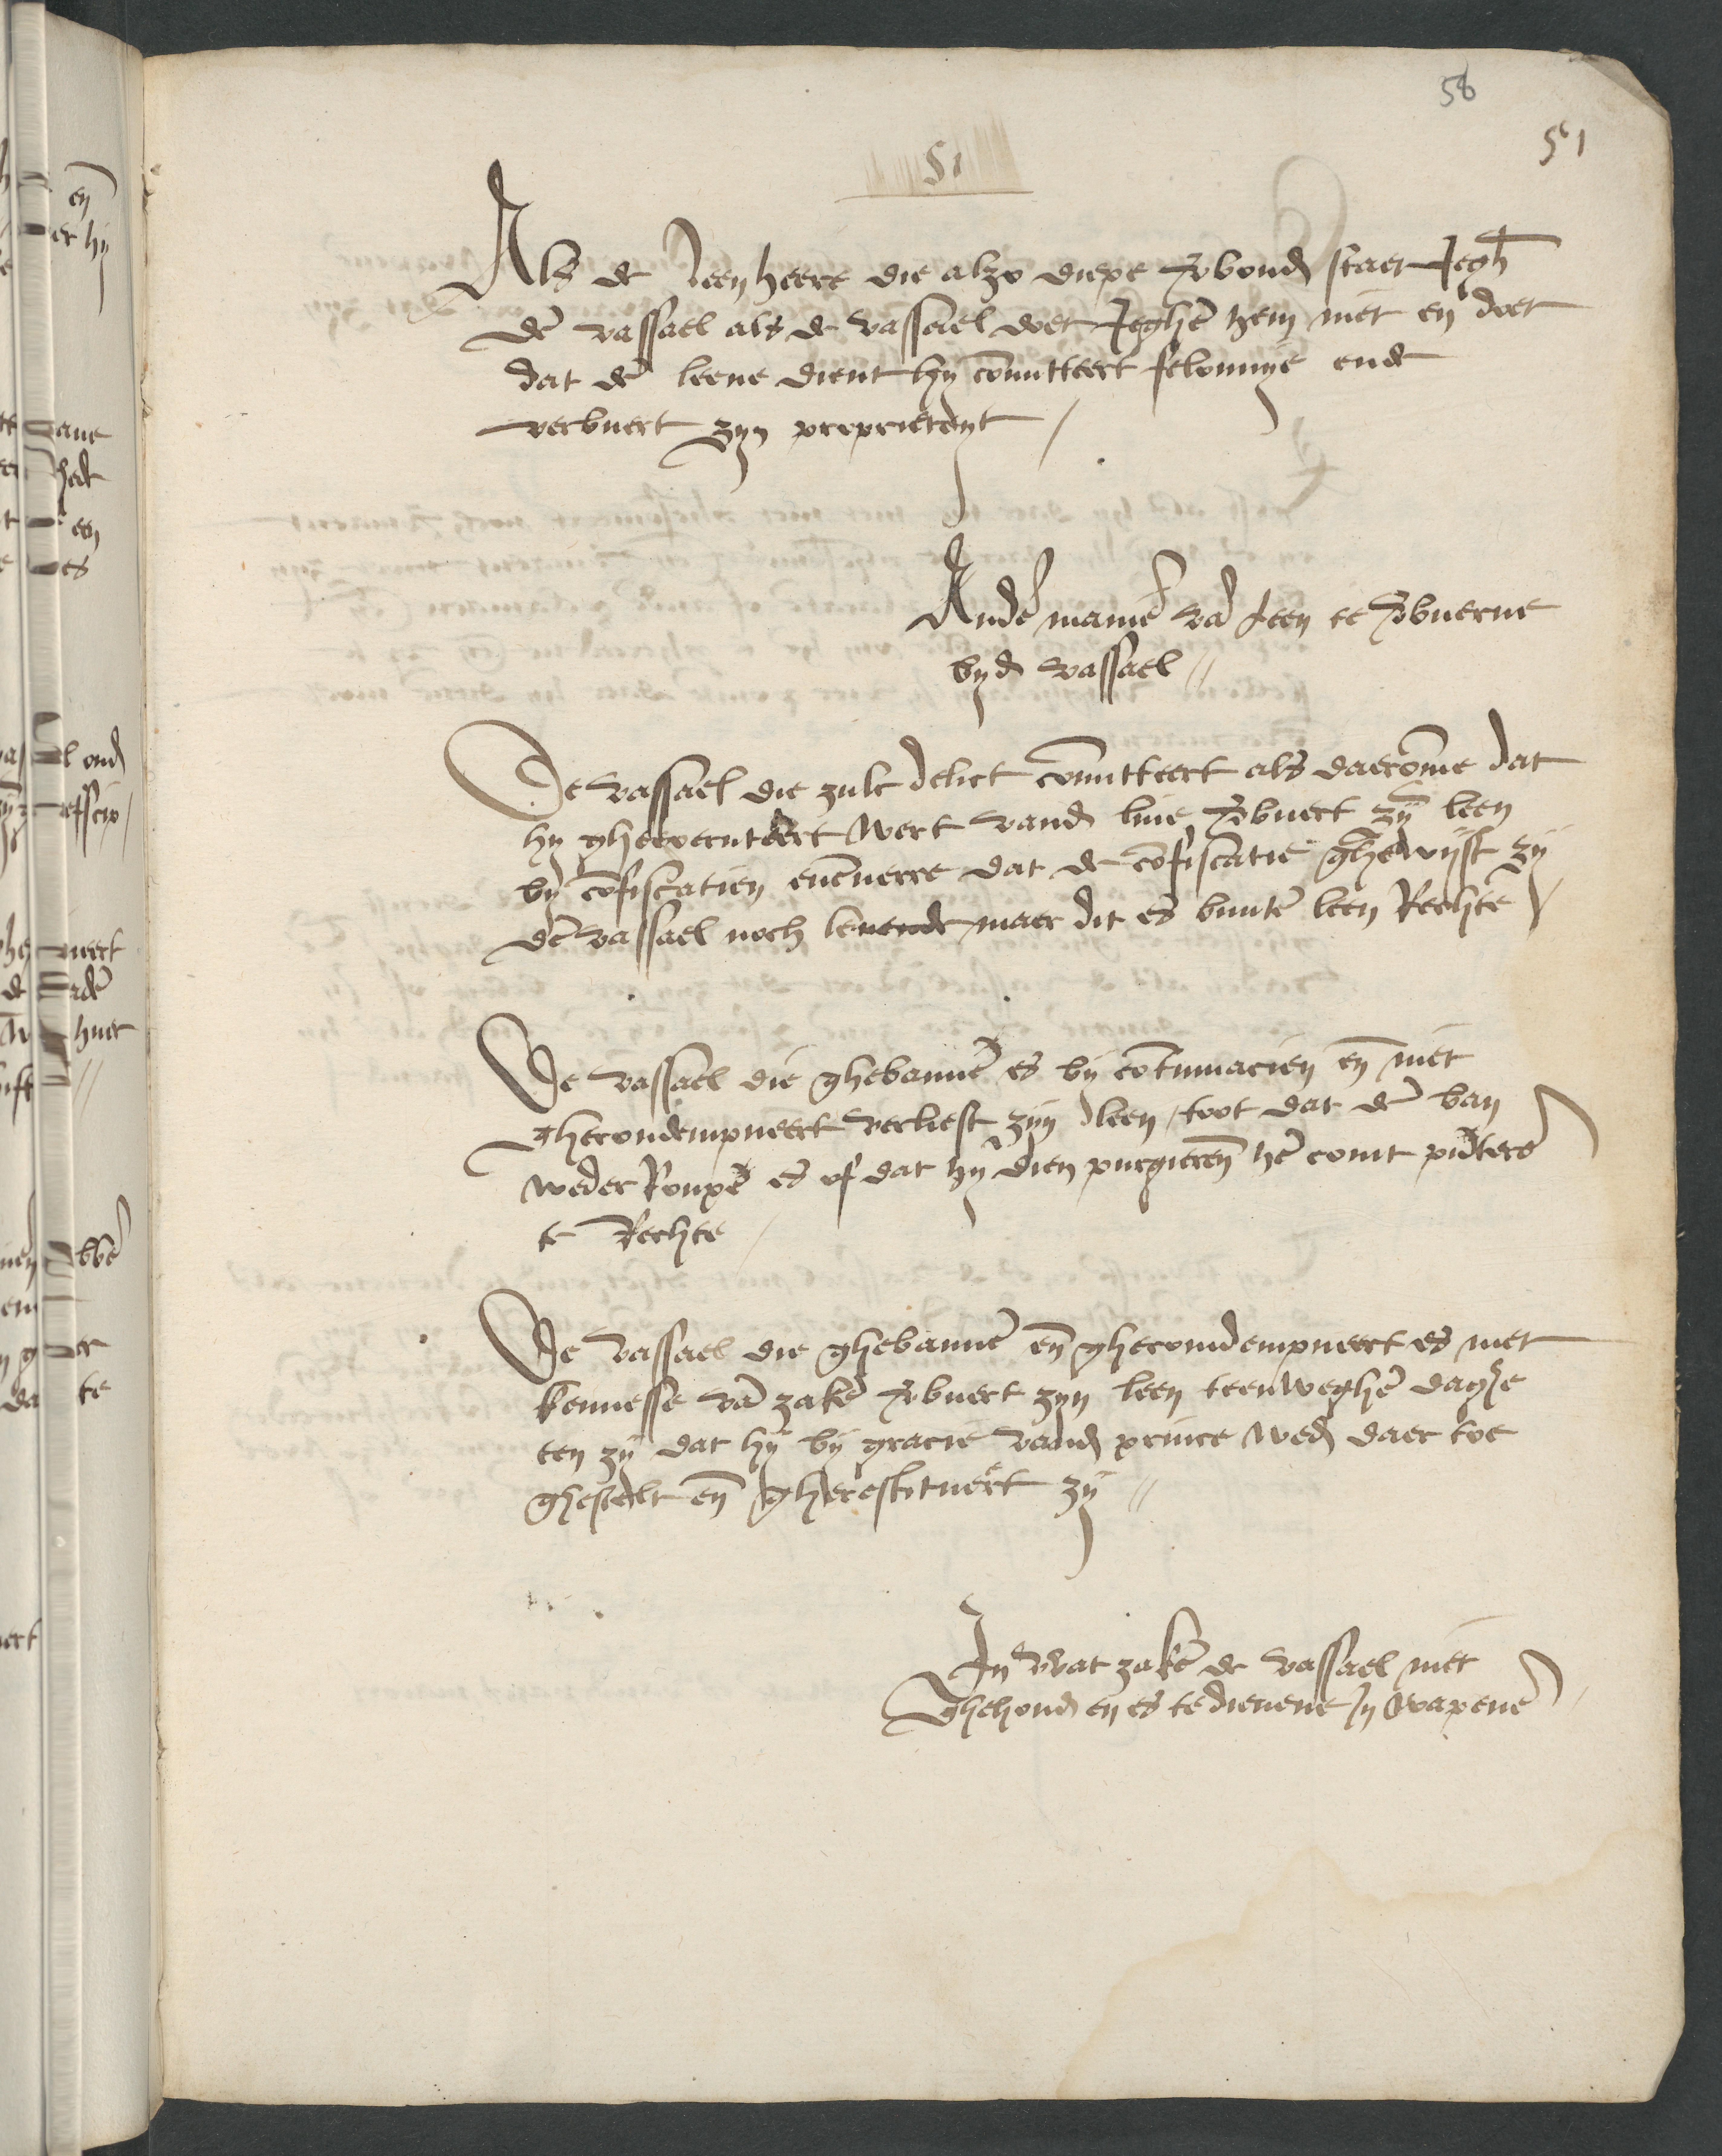 58
51
51
Als de leenheere die alzo diepe vbond staet Jegh
dē vassael als de vassael doet Jeghē hem niet en doet
dat dē leene dient hy cōmitteert felonnye ende
verbuert zyn proprieteyt /
Andē maniē vā leen te vbuerne
byd vassael //
De vassael die zulc delict cōmitteert als daerōme dat
hy gheexecuteert wert vand live vbuert zȳ leen
by cōfiscatien euēverre dat de cōfiscatie ghewijst zy
dē vassael noch levende maer dit es buutē leen Rechtē /
De vassael die ghebannē es by cōtumacien eñ niet
ghecondempneert verliest zyn leen / toot dat dē ban
weder Roupē es of dat hy dien purgierēn hē comt
te Rechte /
De vassael die ghebannē eñ ghecondempneert es met
kennesse vā zakē vbuert zyn leen teenweghē daghe
ten zy dat hy by gracie vand prince wed daer toe
ghestelt eñ gherestitueert zy //
In wat zakē de vassael niet
Ghehoud en es te dienene In wapenē /